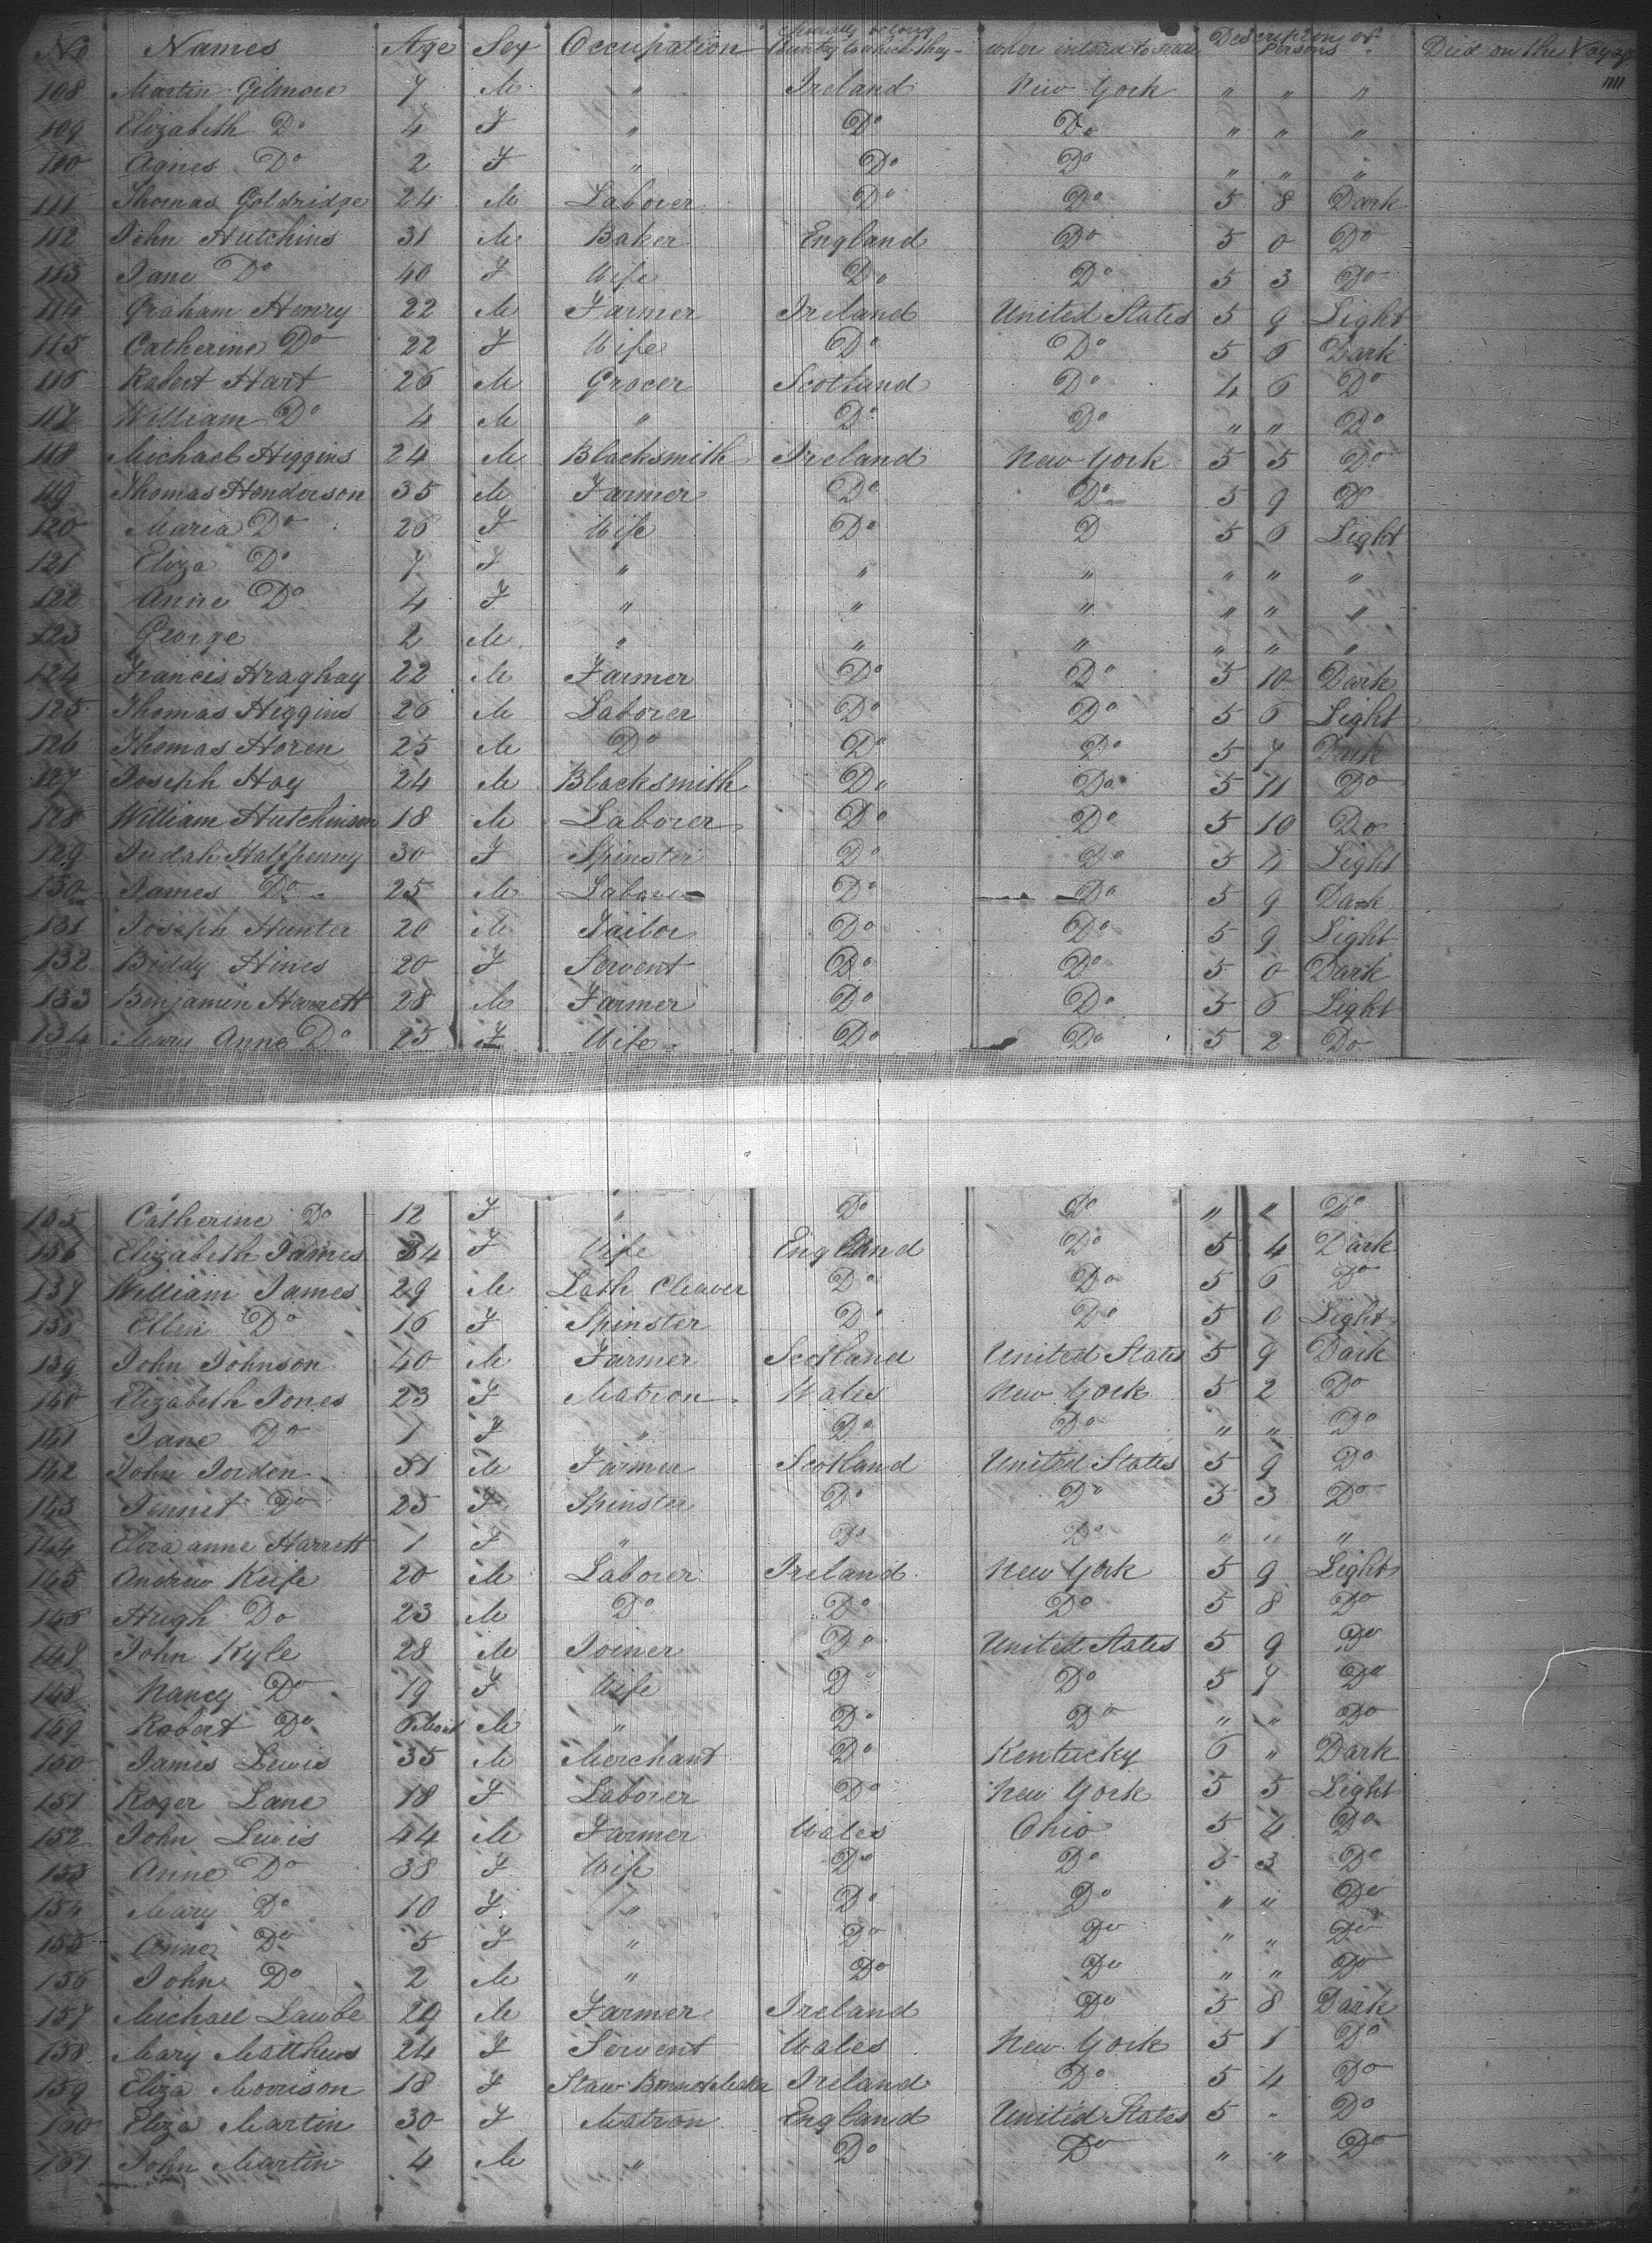 No Names Age Sex Occupation Country to which they belong where intend to reside Description of Persons Died on the Voyage
108 Martin Gilmore 7 M " Ireland New York " " "
109 Elizabeth Do 4 F " Do Do " " "
110 Agnes Do 2 F " Do Do " " "
111 Thomas Goldridge 24 M Laborer Do Do 5 8 Dark
112 John Hutchins 31 M Baker England Do 5 0 Do
113 Jane Do 40 F Wife Do Do 5 3 Do
114 Graham Henry 22 M Farmer Ireland United States 5 9 Light
115 Catherine Do 22 F Wife Do Do 5 6 Dark
116 Robert Hart 26 M Grocer Scotland Do 4 6 Do
117 William Do 4 M " Do Do " " Do
118 Michael Higgins 24 M Blacksmith Ireland New York 5 5 Do
119 Thomas Henderson 35 M Farmer Do Do 5 9 Do
120 Maria Do 26 F Wife Do D 5 6 Light
121 Eliza Do 7 F " " " " " "
122 Anne Do 4 F " " " " " "
123 George 2 M " " " " " "
124 Francis Hraghay 22 M Farmer Do Do 5 10 Dark
125 Thomas Higgins 26 M Laborer Do Do 5 6 Light
126 Thomas Horen 25 M Do Do Do 5 7 Dark
127 Joseph Hoy 24 M Blacksmith Do Do 5 11 Do
128 William Hutchinson 18 M Laborer Do Do 5 10 Do
129 Judah Halfpenny 30 F Spinster Do Do 5 4 Light
130 James Do 25 M Laborer Do Do 5 9 Dark
131 Joseph Hunter 20 M Tailor Do Do 5 9 Light
132 Biddy Hines 20 F Servent Do Do 5 0 Dark
133 Benjamin Harrett 28 M Farmer Do Do 5 6 Light
134 Mary Anne Do 25 F Wife Do Do 5 2 Do
135 Catherine Do 12 F " Do Do " " Do
136 Elizabeth James 34 F Wife England Do 5 4 Dark
137 William James 29 M Lath Cleaver Do Do 5 6 Do
138 Ellen Do 16 F Spinster Do Do 5 0 Light
139 John Johnson 40 M Farmer Scotland United States 5 9 Dark
140 Elizabeth Jones 23 F Matron Wales New York 5 2 Do
141 Jane Do 1 F " Do Do " " Do
142 John Jorden 31 M Farmer Scotland United States 5 9 Do
143 Jennet Do 25 F Spinster Do Do 5 3 Do
144 Eliza anne Harrett 1 F " Do Do " " "
145 Andrew Keife 20 M Laborer Ireland New York 5 9 Light
146 Hugh Do 23 M Do Do Do 5 8 Do
147 John Kyle 28 M Joiner Do United States 5 9 Do
148 Nancy Do 19 F Wife Do Do 5 7 Do
149 Robert Do 6 M " Do Do " " Do
150 James Lewis 35 M Merchant Do Kentucky 6 " Dark
151 Roger Lane 18 F Laborer Do New York 5 5 Light
152 John Lewis 44 M Farmer Wales Ohio 5 4 Do
153 Anne Do 38 F Wife Do Do 5 3 Do
154 Mary Do 10 F " Do Do " " Do
155 Anne Do 5 F " Do Do " " Do
156 John Do 2 M " Do Do " " Do
157 Michael Lawbe 29 M Farmer Ireland Do 5 8 Dark
158 Mary Matthews 24 F Servent Wales New York 5 1 Do
159 Eliza Morrison 18 F Staw Bonnet Maker Ireland Do 5 4 Do
160 Eliza Martin 30 F Matron England United States 5 " Do
161 John Martin 4 M " Do Do " " Do